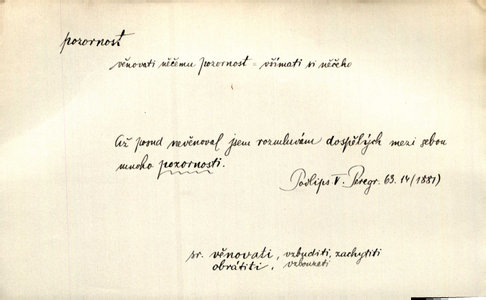 pozornost
věnovati něčemu pozornost = všímati si něčeho
Až posud nevěnoval jsem rozmluvám dospělých mezi sebou
mnoho pozornosti.
Podlips V. Peregr. 63. 14 (1881)
sr. věnovati, vzbuditi, zachytiti
obrátiti, vzbouzeti